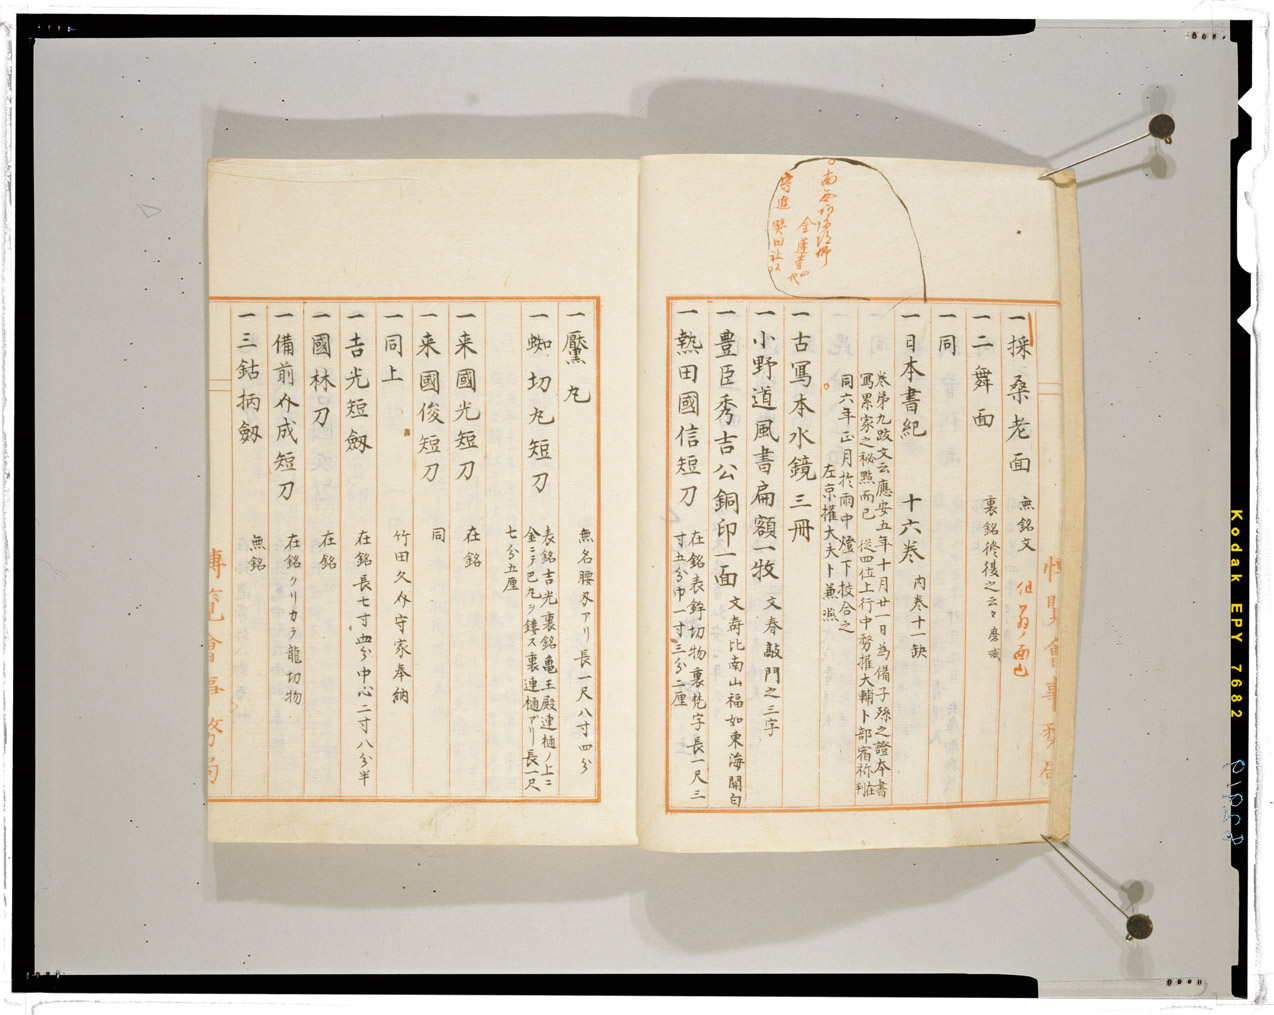 一採桑老面 無銘文
一二舞面
一同
一日本書紀 十六卷 內卷十一缺
卷第九跋文云應安五年十月廿一日為備子孫之證本書
寫累家之秘點而已 從四位上行中務權大輔卜部宿祢在判
同六年正月於雨中燈下校合之
左京權大夫卜兼凞
一古寫本水鏡三冊
一小野道風書扁額一枚 文春敲門之三字
一豊臣秀吉公銅印一面 文壽比南山福如東海開白
一熱田國信短刀 在銘表鉾切物裏梵字長一尺三
寸五分巾一寸三分二厘
一黶丸 無名腰刄アリ長一尺八寸四分
一蜘切丸短刀 表銘吉光裏銘亀王殿連樋ノ上ニ
金ニテ巴九ヲ鏤ス裏連樋アリ長一尺
七分五厘
一来國光短刀 在銘
一来國俊短刀 同
一同上 竹田久外守家奉納
一吉光短劔 在銘長七寸四分中心二寸八分半
一國林刀 在銘
一備前介成短刀 在銘クリカラ龍切物
一三鈷柄劔 無銘
博覽會事務局
Kodak EPY 7682